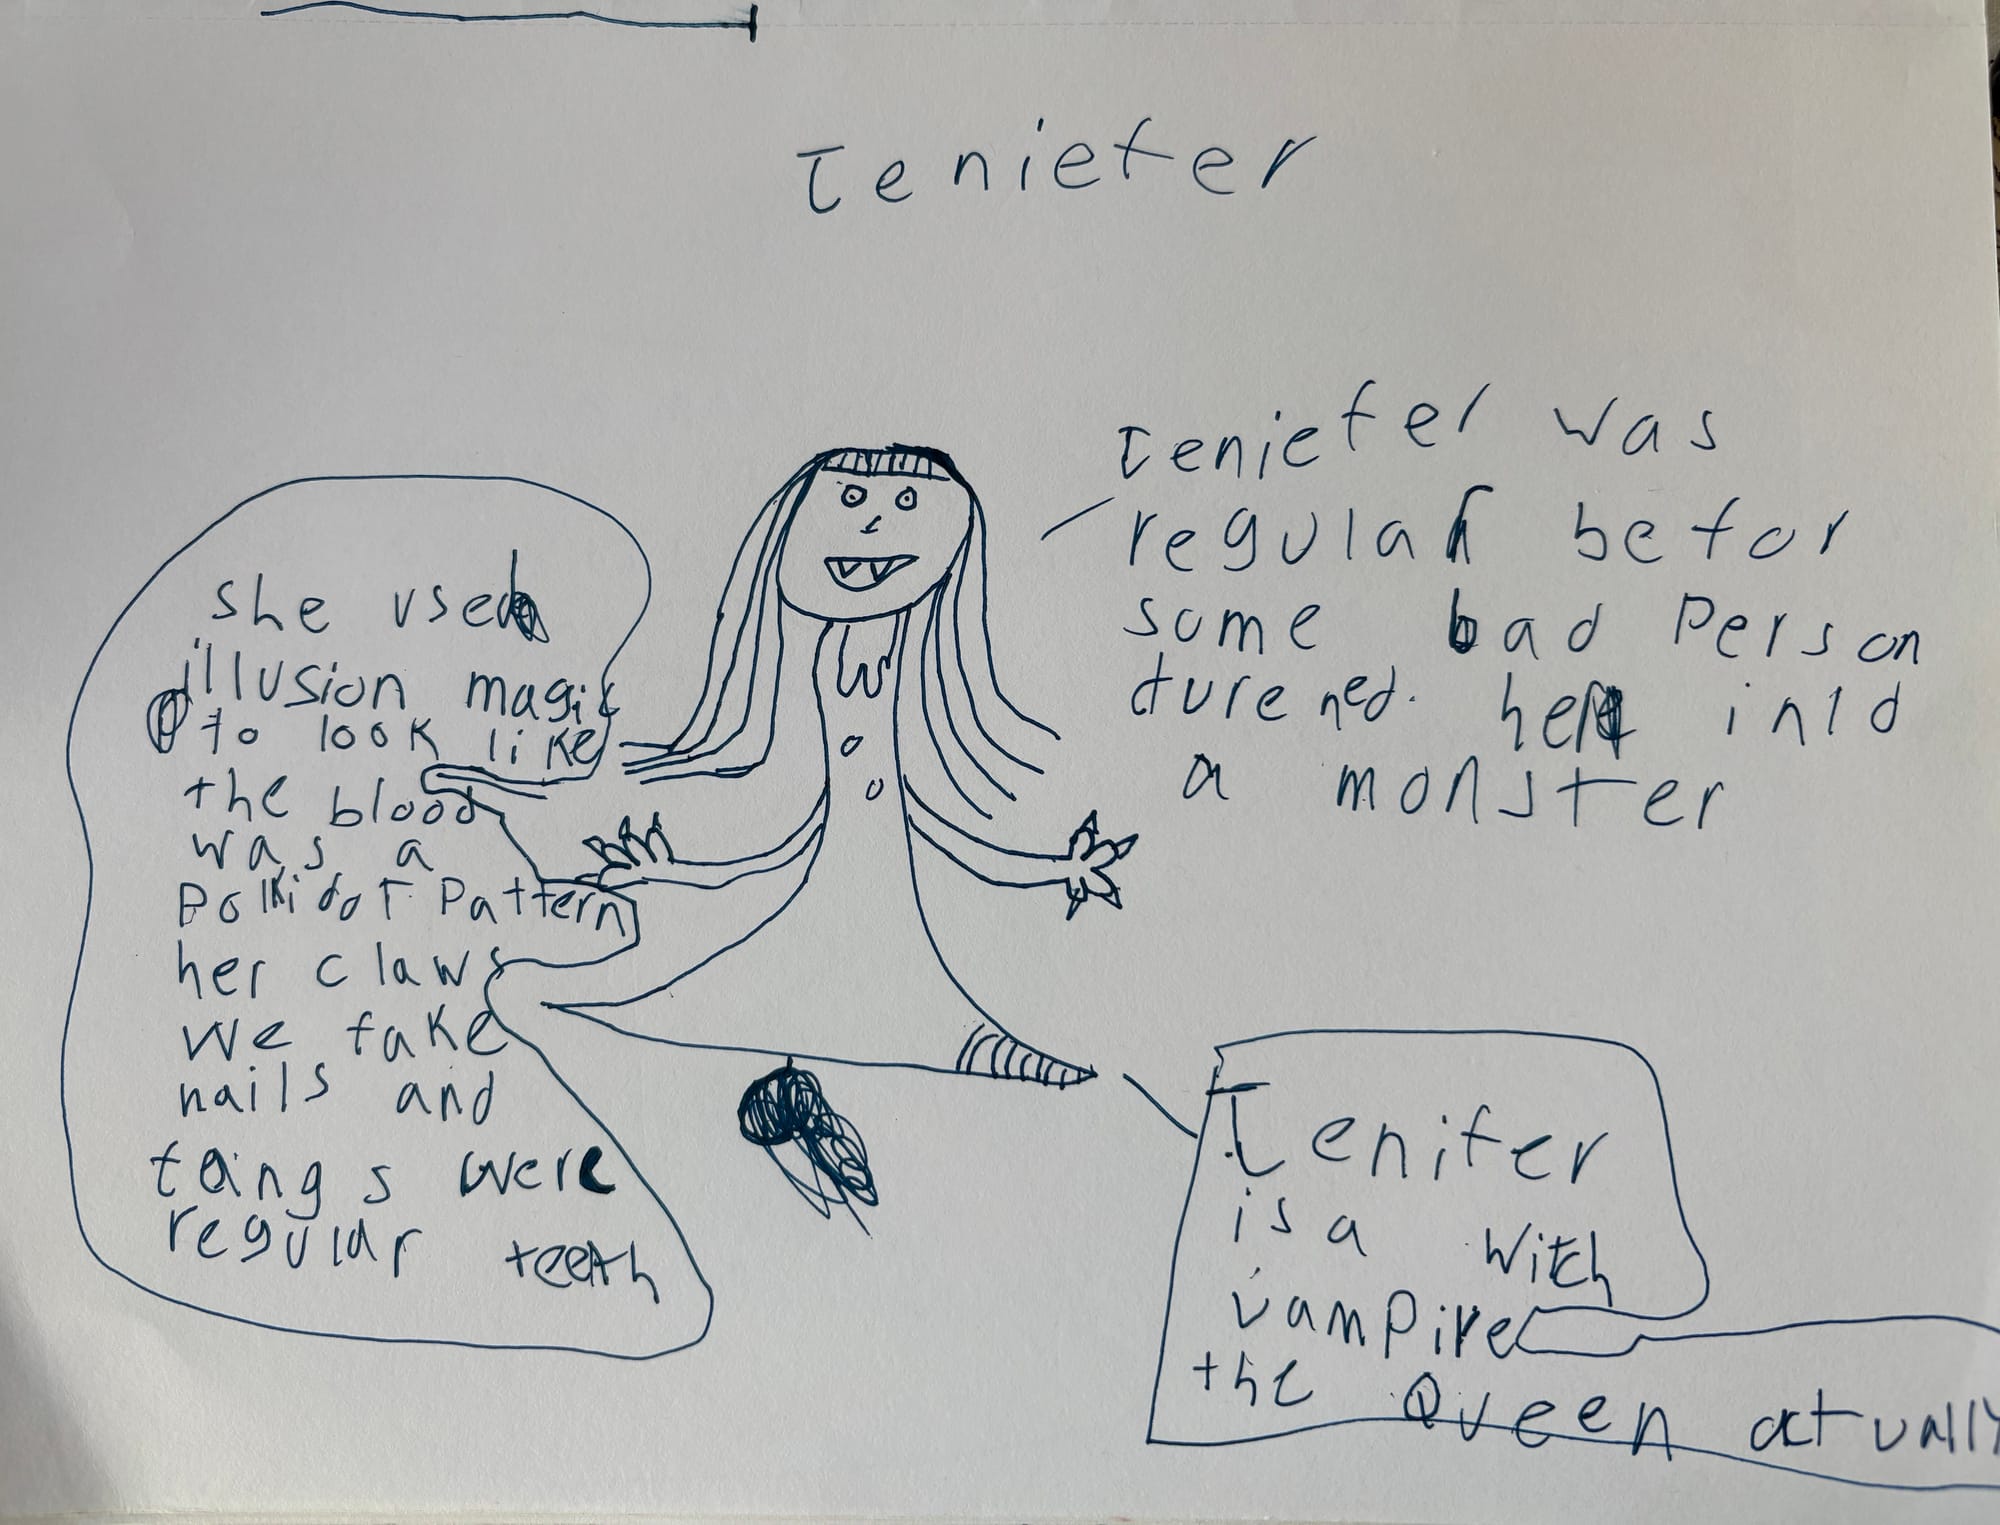 Ieniefer
Ieniefer was
regular befor
some bad Person
turened her into
a monster
she used
illusion magic
to look like
the blood
was a
Polkidot Pattern
her claws
we fake
nails and
fangs were
regular teeth
Ienifer
is a witch
vampire
the Queen actually